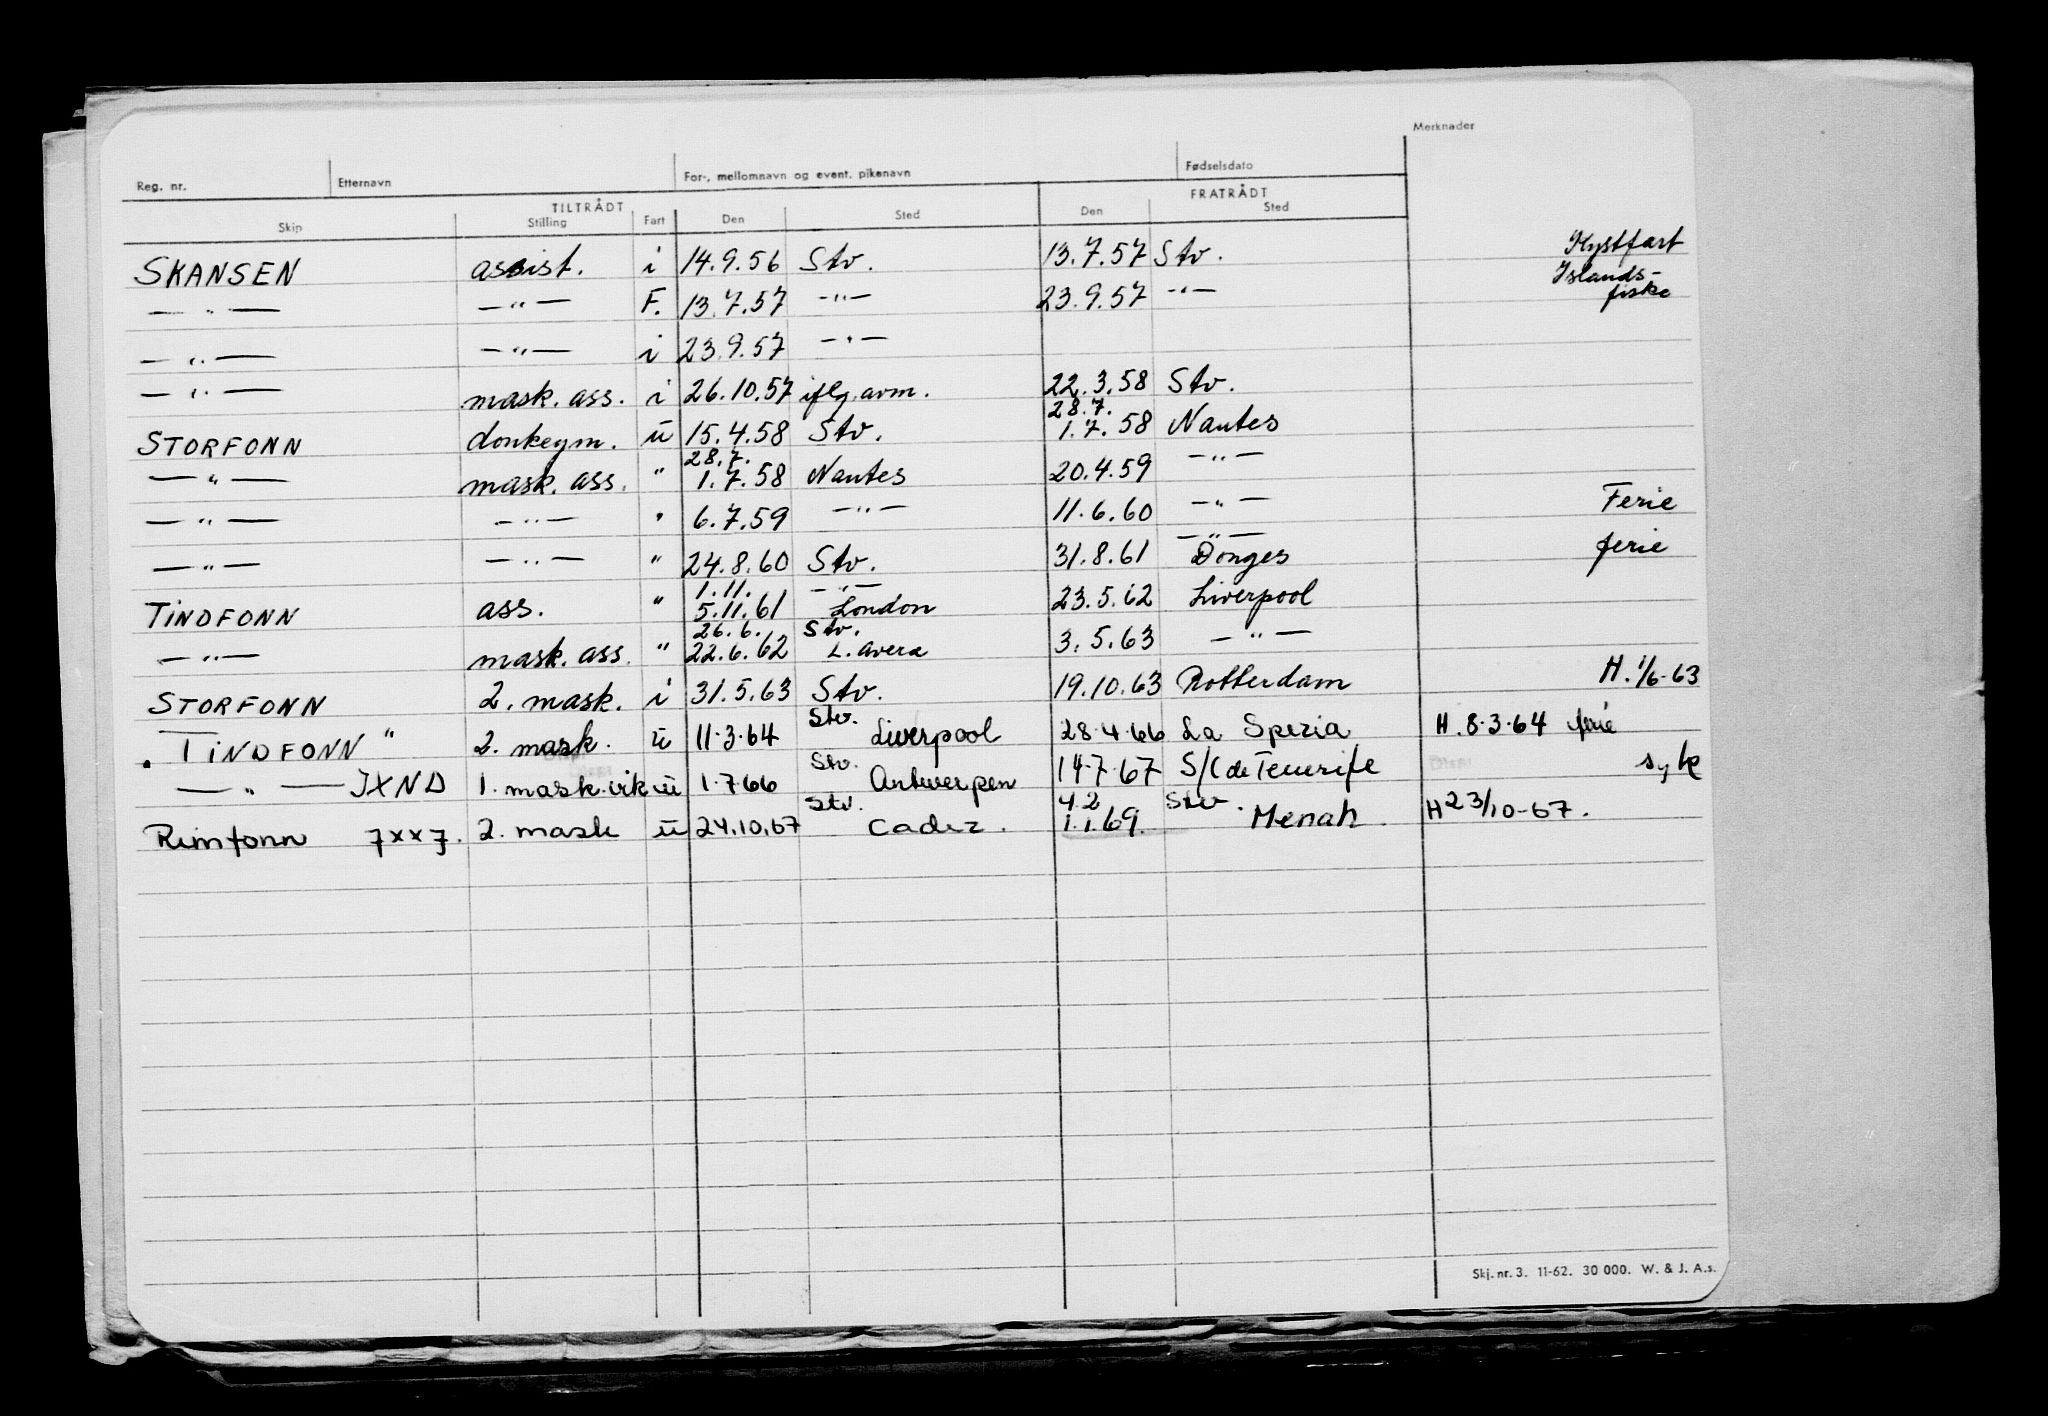 Merknader
Reg. nr. Etternavn For-, mellomnavn og event. pikenavn Fødselsdato
TILTRÅDT FRATRÅDT
Skip Stilling Fart Den Sted Den Sted
SKANSEN assist. i 14.9.56 Stv. 13.7.57 Stv. Kystfart
—"— —"— F. 13.7.57 —"— 23.9.57 —"— Islands-
fiske
—"— —"— i 23.9.57 —"—
—"— mask. ass. i 26.10.57 iflg. avm. 22.3.58 Stv.
28.7.
STORFONN donkeym. u 15.4.58 Stv. 1.7.58 Nantes
28.7.
—"— mask. ass. " 1.7.58 Nantes 20.4.59 —"—
—"— —"— " 6.7.59 —"— 11.6.60 —"— Ferie
—"—
—"— —"— " 24.8.60 Stv. 31.8.61 Donges ferie
1.11. —"—
TINDFONN ass. " 5.11.61 London 23.5.62 Liverpool
26.6. Stv.
—"— mask. ass. " 22.6.62 3.5.63 —"—
STORFONN 2. mask. i 31.5.63 Stv. 19.10.63 Rotterdam H. 1/6-63
Stv.
. TINDFONN " 2. mask. u 11.3.64 Liverpool 28.4.66 La Spezia H. 8.3.64 ferie
Stv.
—"— JXND 1. mask. vik u 1.7.66 Antwerpen 14.7.67 S/C de Tenerife syk
Stv. 4.2 Stv.
Rimfonn 7xx7. 2. mask u 24.10.67 Cadiz. 1.1.69. Menah. H 23/10-67.
Skj. nr. 3. 11-62. 30 000. W. & J. A.s.